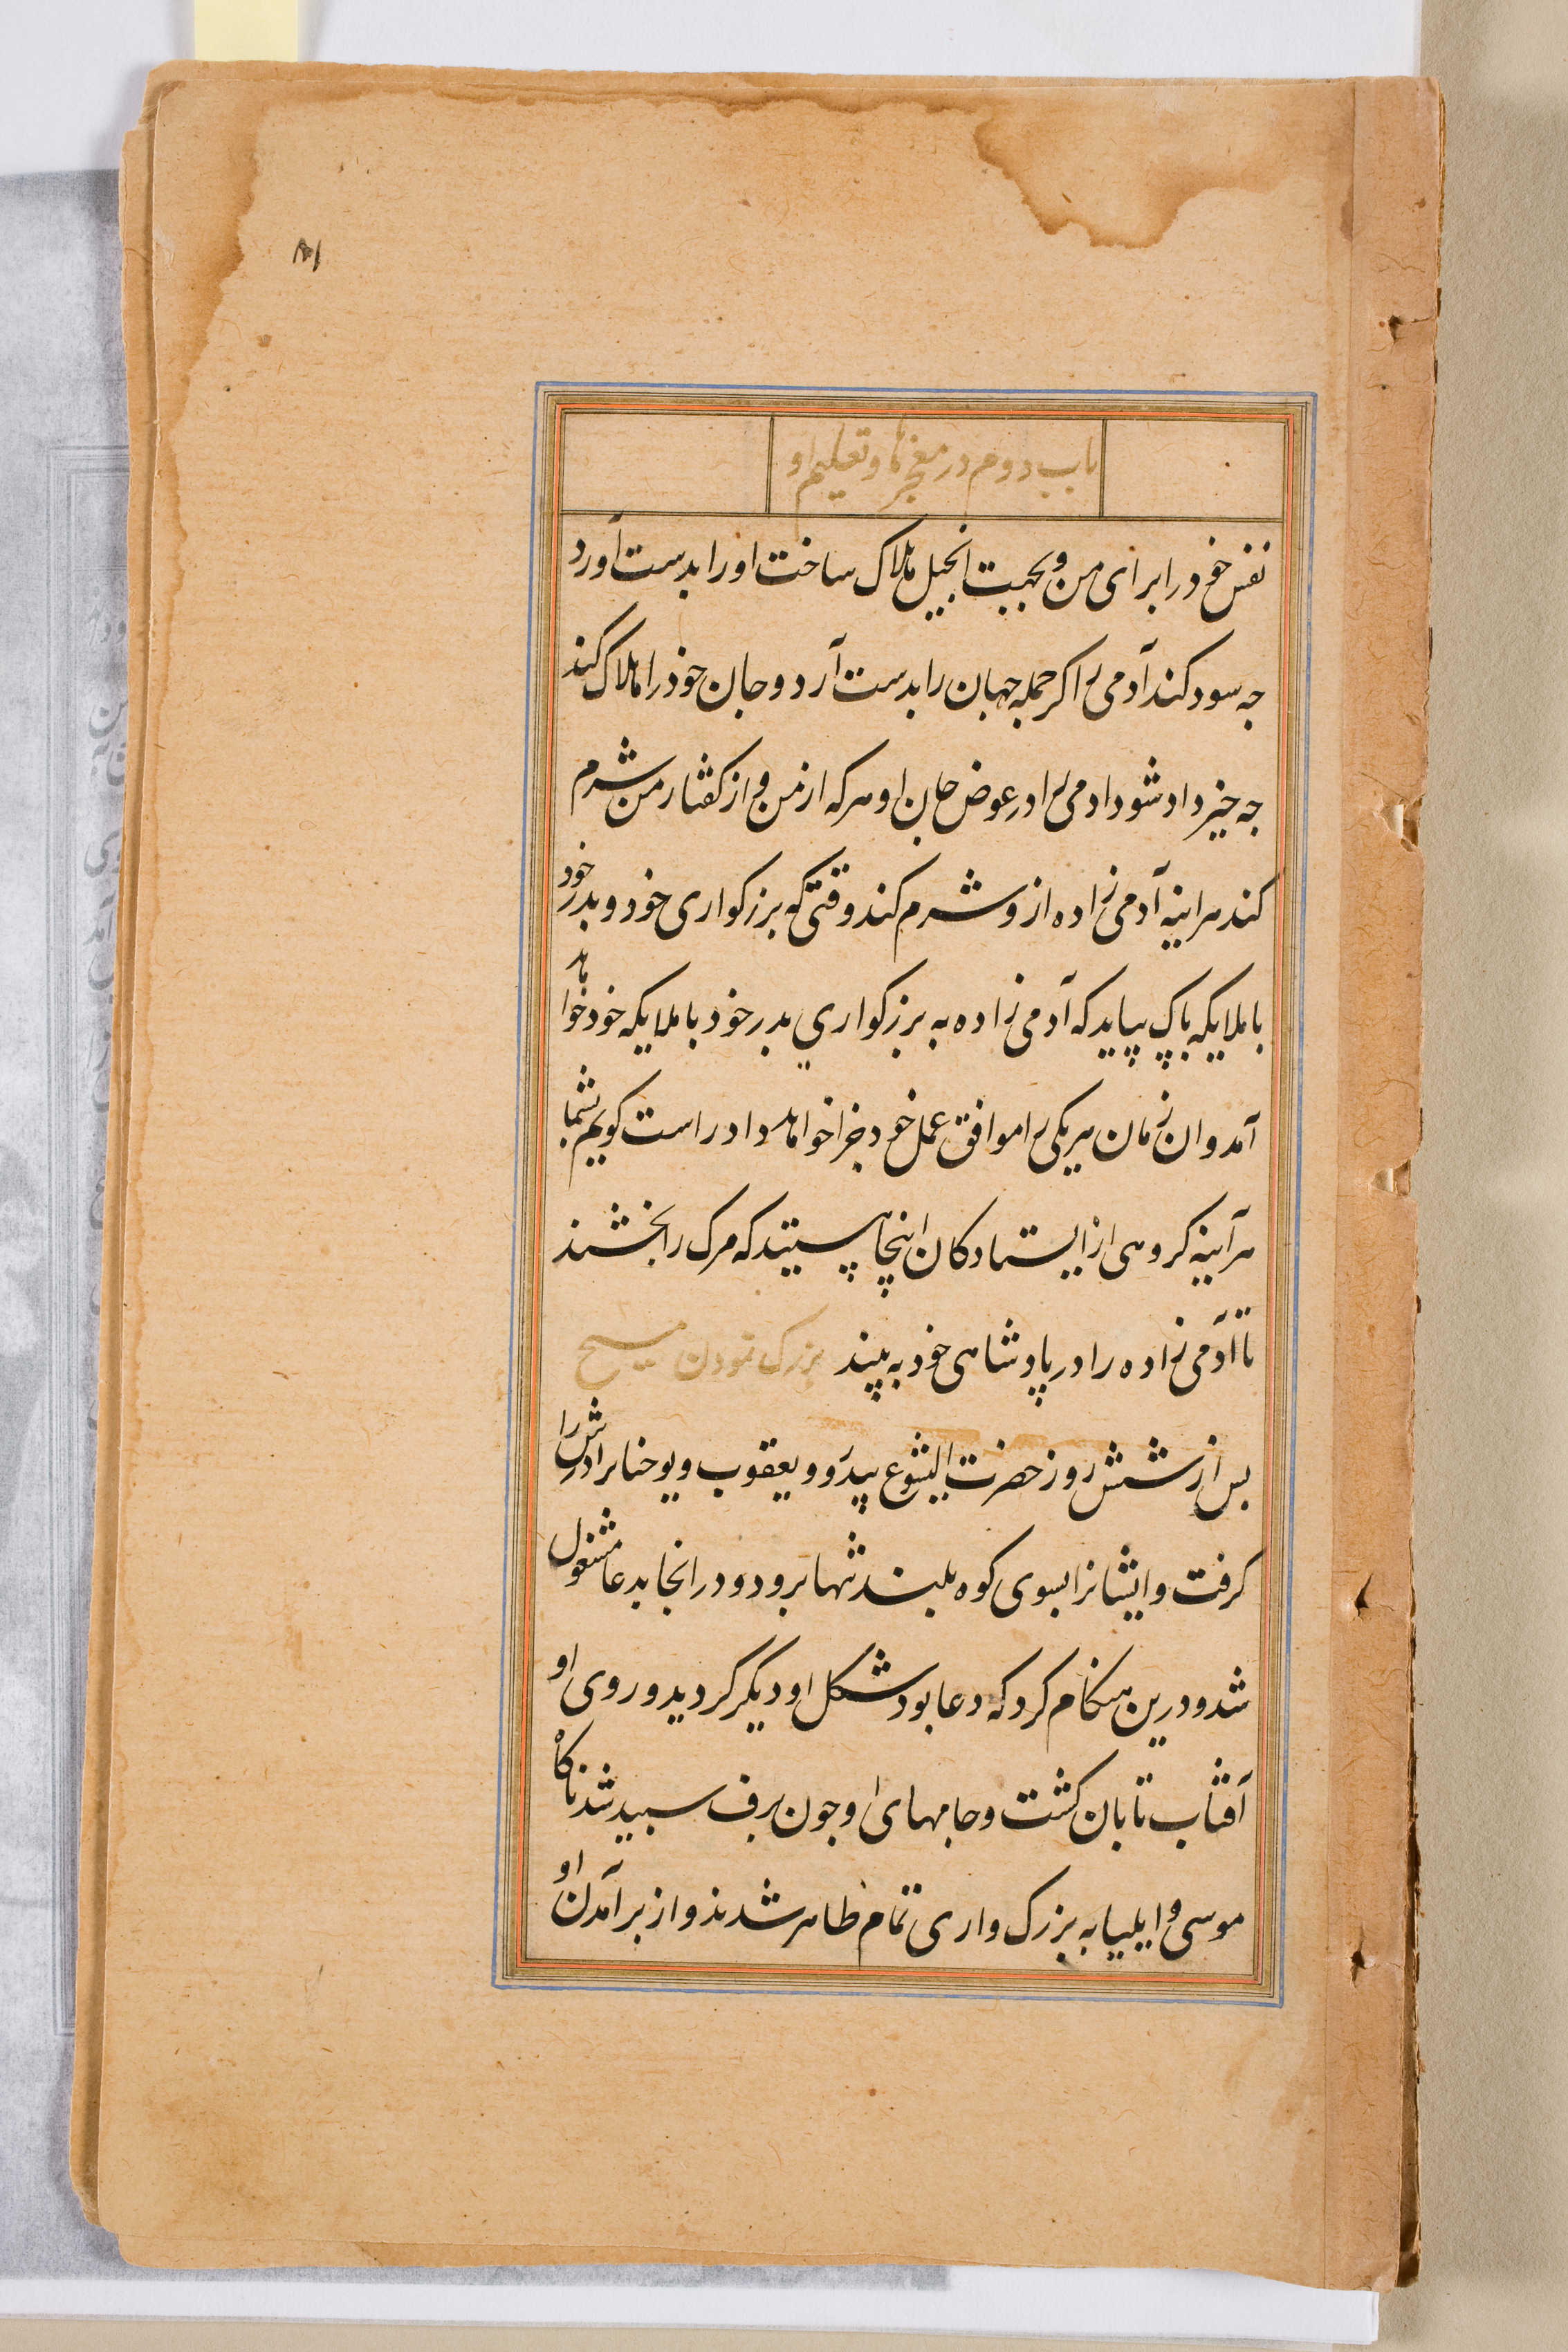 ۱۸۱
باب دوم در معجزها و تعلیم او
نفس خود را برای من و بجهت انجیل هلاک ساخت اورا بدست آورد
جه سود کند آدمی را اکر جمله جهان را بدست آرد و جان خود را هلاک کند
جه جیز داد شود ادمی را در عوض جان او هرکه از من و از کفتار من شرم
کند هراینه آدمی زاده از و شرم کند وقتی که ببزرکواری خود و بدر خود
با ملایکه باک بیاید که آدمی زاده به بزرکواری بدر خود با ملایکه خود خواهد
آمد و ان زمان هریکی را موافق عمل خود جزا خواهد داد راست کویم بشما
هرآینه کروهی از ایستادکان اینجا هستند که مرک را نخشند
تا آدمی زاده را در پادشاهی خود به بیند بزرک نمودن مسیح
بس از شش روز حضرت ایشوع پیدرو و یعقوب و یوحنا برادرش را
کرفت و ایشانرا بسوی کوه بلند تنها برود و در انجا بدعا مشغول
شد و درین هنکام کرد که دعا بود شکل او دیگر گردید و روی او
آفتاب تابان کشت و جامهای او جون برف سبید شد ناکاه
موسی و ایلیا به بزرک واری تمام ظاهر شدند و از برآمدن او